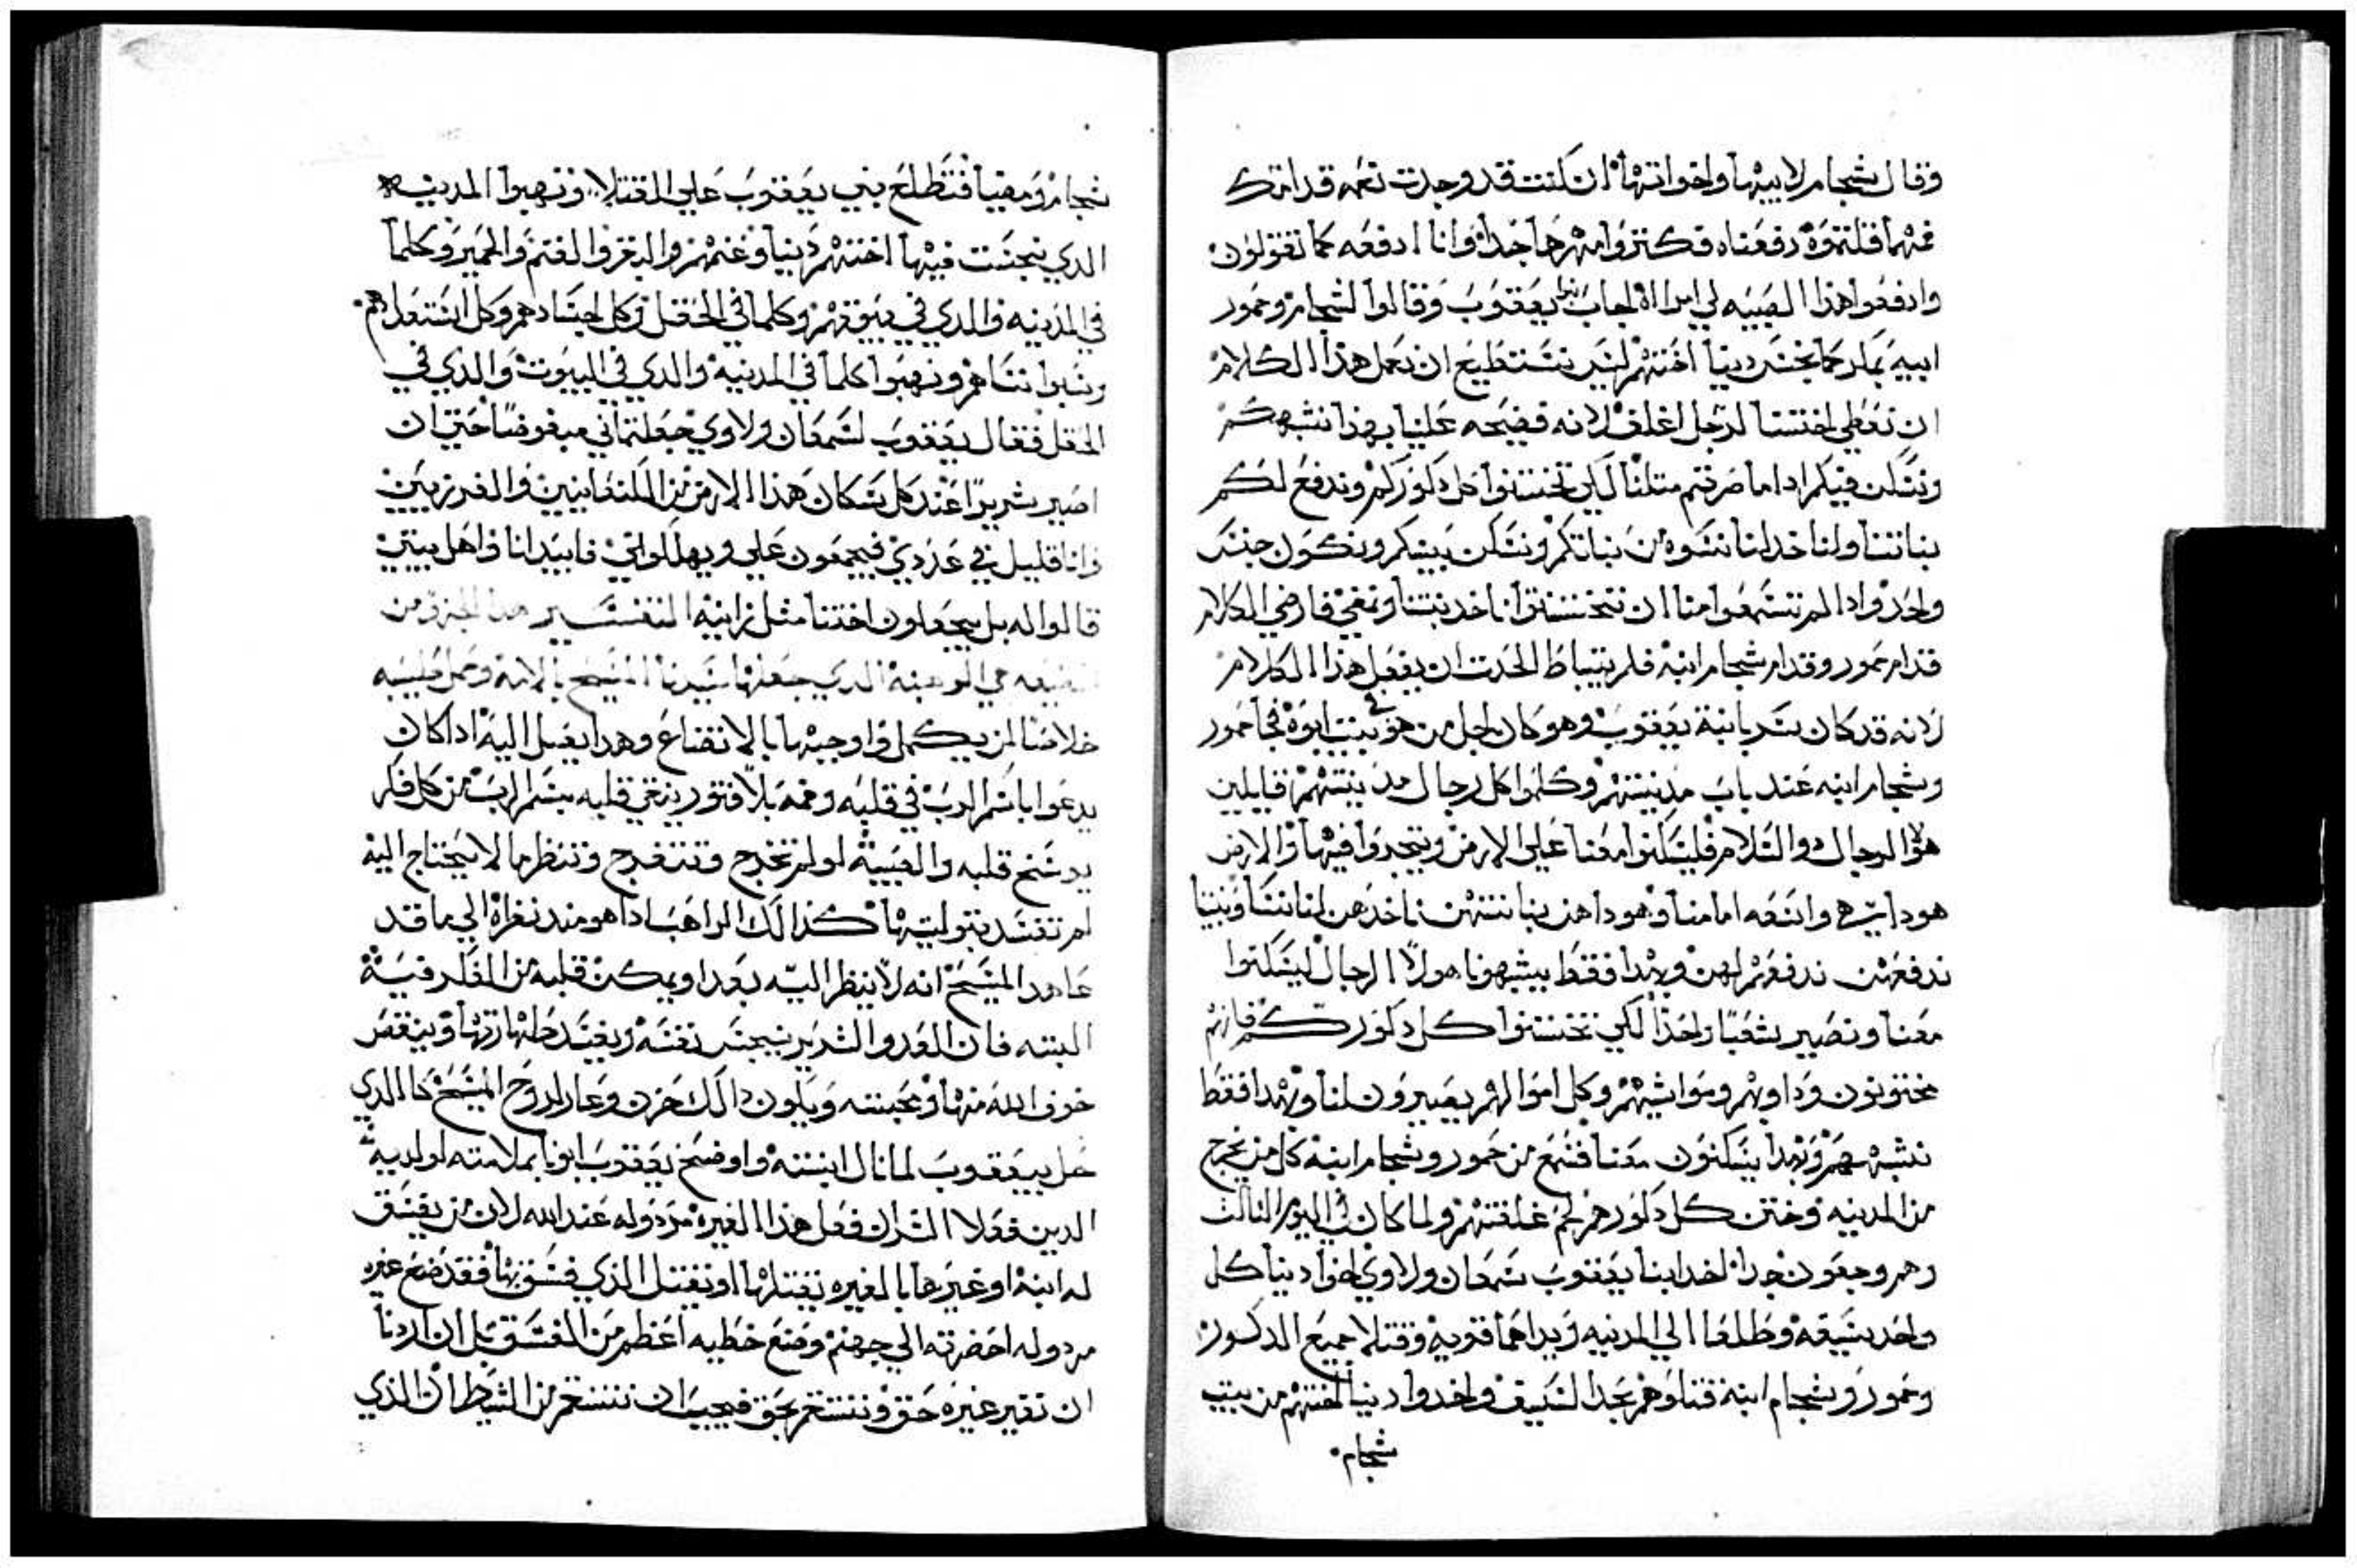 وقال شجام لابيها واخواتها ان كنت قد وجدت نعمه قدامكم
فمهما قلتموه دفعناه فكتروا مهرها جدا وانا ادفعه كما تقولون
وادفعوا هذا الصبيه لي امراه اجاب بنوا يعقوب وقالوا لشجام وحمور
ابيه بمكر حما نجس دينا اختهم ليس نستطيع ان نعمل هذا الكلام
ان نعطي اختنا لرجل اغلف لانه فضيحه علينا بهذا نشبهكم
ونسكن فيكم اداما صرتم متلنا لكي تختتنوا كل دكوركم وندفع لكم
بناتنا ولنا خد لنا نسوه من بناتكم ونسكن بينكم ونكون جنس
واحد وادا لم تسمعوا منا ان تختتنوا ناخد بنتنا ونمضي فارضي الكلام
قدام حمور وقدام شجام ابنه فلم يتباطا الحدت ان يفعل هذا الكلام
لانه قد كان يسر بابنة يعقوب وهو كان اجل من هو في بيت ابوه فجا حمور
وشجام ابنه عند باب مدينتهم وكلموا كل رجال مدينتهم قايلين
هولا الرجال دوا السلام فليسكنوا معنا علي الارض ويتجروا فيها والارض
هودا هي واسعه امامنا وهودا هن بناتهن ناخدهن لنا نسا وبنيا
ندفعهن ندفعهم لهن وبهدا فقط يشبهونا هولا الرجال ليسكنوا
معنا ونصير شعبا واحدا لكي تختتنوا كل دكوركم فانهم
مختونون ودوابهم ومواشيهم وكل اموالهم يصيرون لنا وبهدا فقط
نشبههم وبهدا يسكنون معنا فسمع من حمور وشجام ابنه كل من يخرج
من المدينه وختن كل دكورهم لحم غلفتهم ولما كان في اليوم التالت
وهم وجعون جدا اخد ابنا يعقوب شمعان ولاوي اخوا دينا كل
واحد سيفه وطلعا الي المدينه ويداهما قويه وقتلا جميع الدكور
وحمور وشجام ابنه قتلوهم بحد السيف واخدوا دينا اختهم من بيت
شجام
شجام ومضيا فتطلع بني يعقوب علي القتلا ونهبوا المدينه
الدي نجست فيها اختهم دينا وغنمهم والبقر والغنم والحمير وكلما
في المدينه والدي في بيوتهم وكلما في الحقل وكل اجسادهم وكل استعدادهم
وسبوا نساهم ونهبوا كلما في المدينه والدي في البيوت والدي في
الحقل فقال يعقوب لشمعان ولاوي جعلتماني مبغوضا حتي ان
اصير شريرا عند كل سكان هذا الارض من الكنعانيين والفرزيين
وانا قليل في عددي فيجمعون علي ويهلكواني فابيد انا واهل بيتي
قالوا له بل يجعلون اختنا مثل زانيه التفسير هدا الجزو من
هي الوهبنه الدي جعلها سيدنا المسيح بالامه وحمل صليبه
خلاصنا لمن يكمل واجبها بالاتضاع وهدا يصل اليه ادا كان
يدعوا باسم الرب في قلبه وفمه بلا فتور ينقي قلبه بيسم الرب من كل فكر
يوسخ قلبه والصبيه لو لم تخرج وتتفرج وتنظر ما لا يحتاج اليه
لم تفسد بتوليتها كدالك الراهب ادا هو مند نفراه الي ما قد
عاهد المسيح انه لا ينظر اليه بعدا ويمكن قلبه من الفكر فيه
البته فان العدو الشرير ينجس نفسه ويفسد طهارتها وينقص
خوف الله منها ومحبته ويكون دالك حزن وعار لروح المسيح كالدي
حل بيعقوب لما نال ابنته واوضح يعقوب ابونا بملامته لولديه
الدين فعلا الشر ان فعل هذا الغيره مردوله عند الله لان من يفسق
له ابنه او غيرها بالغيره يقتلها او يقتل الذي فسق بها فقد صنع غيره
مردوله احضرته الي جهنم وصنع خطيه اعظم من الفسق بل ان اردنا
ان نغير غيره حق وننتقم بحق فيجب ان ننتقم من الشيطان الذي